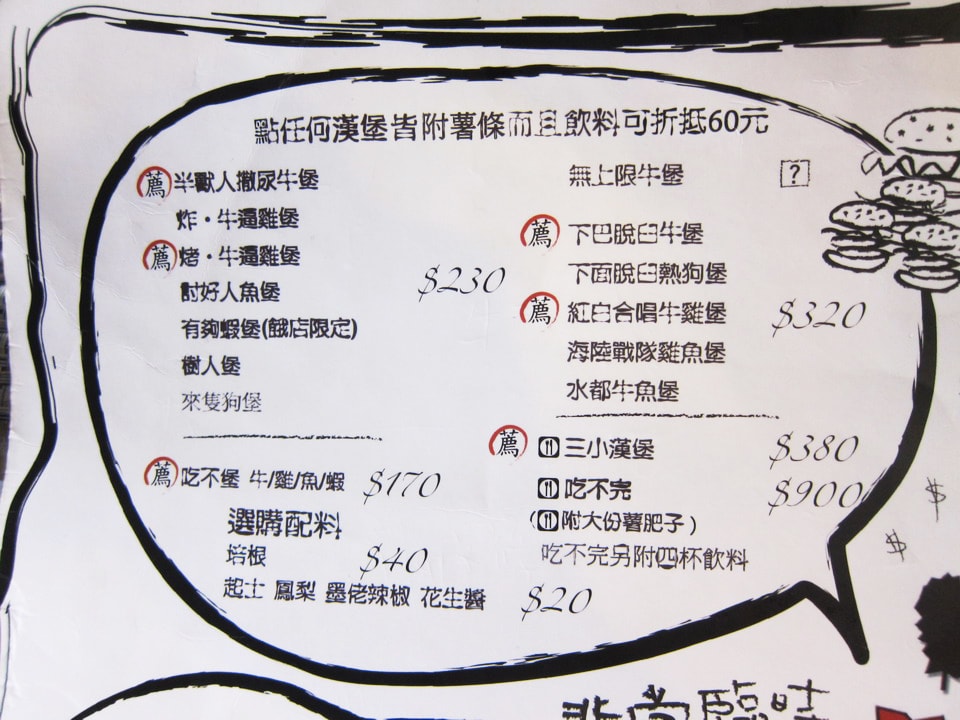 點任何漢堡皆附薯條而且飲料可折抵60元
薦 半獸人撒尿牛堡
炸・牛逼雞堡
薦 烤・牛逼雞堡
討好人魚堡
有夠蝦堡(餓店限定)
樹人堡
來隻狗堡
$230
薦 吃不堡 牛/雞/魚/蝦 $170
選購配料
培根 $40
起士 鳳梨 墨佬辣椒 花生醬 $20
無上限牛堡 ?
薦 下巴脫臼牛堡
下面脫臼熱狗堡
薦 紅白合唱牛雞堡
海陸戰隊雞魚堡
水都牛魚堡
$320
薦 三小漢堡 $380
吃不完 $900
(附大份薯肥子)
吃不完另附四杯飲料
$
$